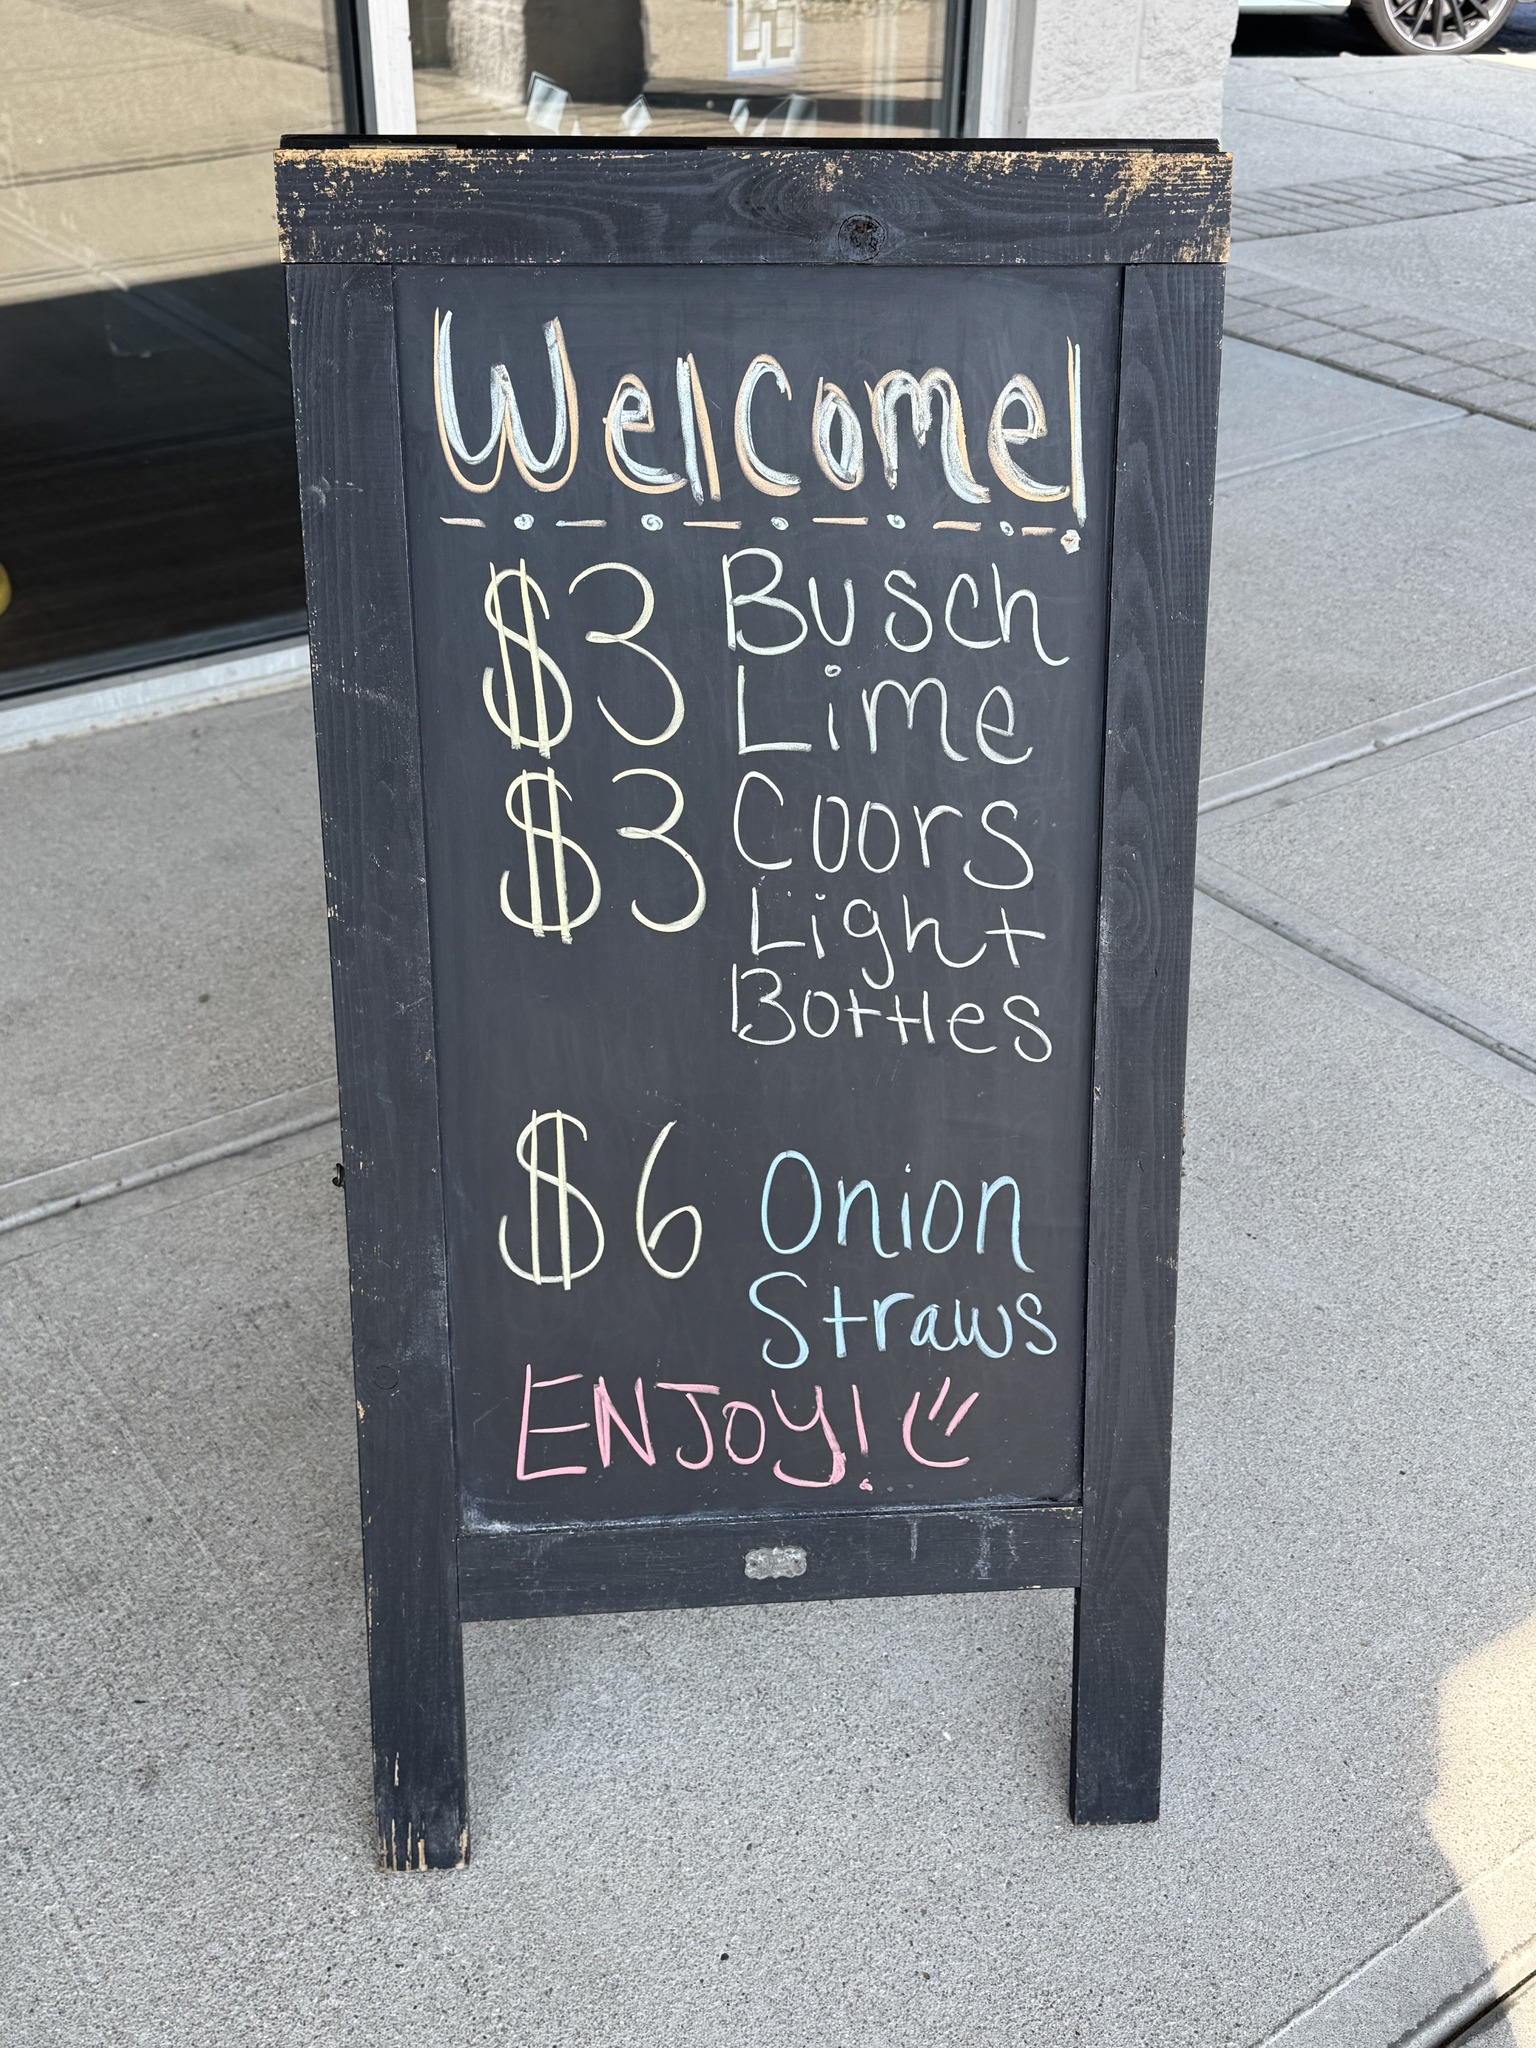 Welcome!
$3 Busch
Lime
$3 Coors
Light
Bottles
$6 Onion
Straws
ENJOY!